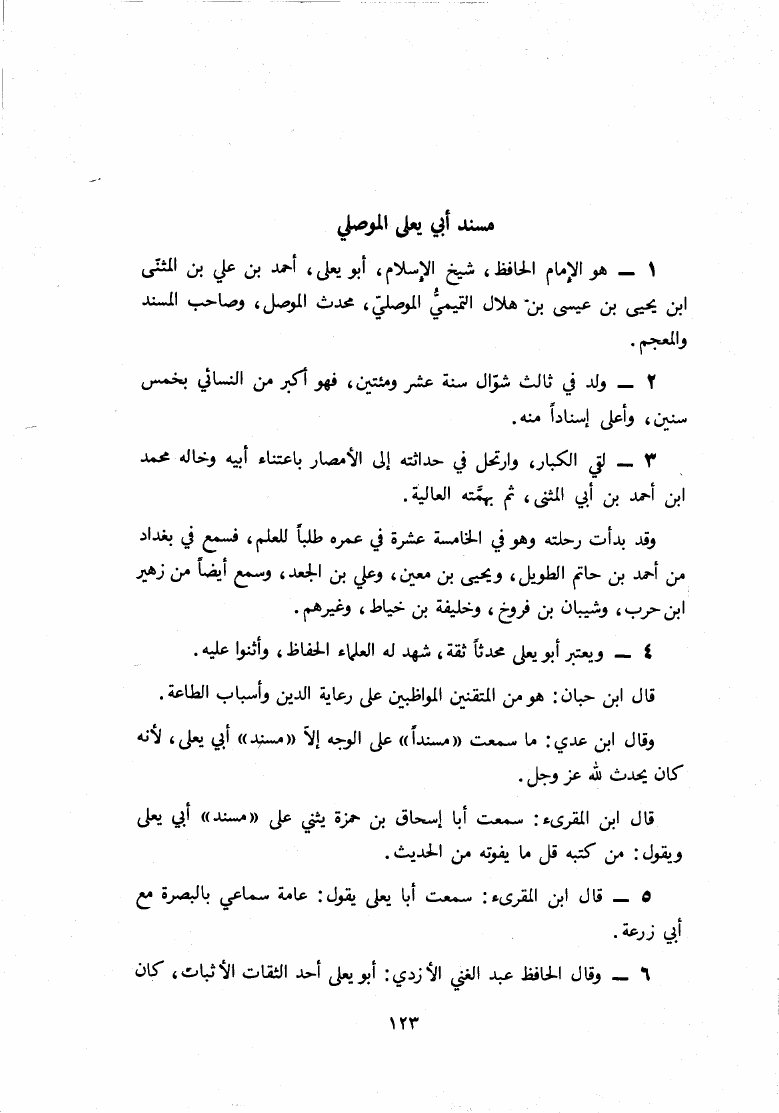 مسند أبي يعلى الموصلي
١ — هو الإمام الحافظ، شيخ الإسلام، أبو يعلى، أحمد بن علي بن المثنّى
ابن يحيى بن عيسى بن هلال التميميُّ الموصليّ، محدث الموصل، وصاحب المسند
والمعجم.
٢ — ولد في ثالث شوّال سنة عشر ومئتين، فهو أكبر من النسائي بخمس
سنين، وأعلى إسناداً منه.
٣ — لقي الكبار، وارتحل في حداثته إلى الأمصار باعتناء أبيه وخاله محمد
ابن أحمد بن أبي المثنى، ثم بهمَّته العالية.
وقد بدأت رحلته وهو في الخامسة عشرة في عمره طلباً للعلم، فسمع في بغداد
من أحمد بن حاتم الطويل، ويحيى بن معين، وعلي بن الجعد، وسمع أيضاً من زهير
ابن حرب، وشيبان بن فروخ، وخليفة بن خياط، وغيرهم.
٤ — ويعتبر أبو يعلى محدثاً ثقة، شهد له العلماء الحفاظ، وأثنوا عليه.
قال ابن حبان: هو من المتقنين المواظبين على رعاية الدين وأسباب الطاعة.
وقال ابن عدي: ما سمعت «مسنداً» على الوجه إلاّ «مسند» أبي يعلى، لأنه
كان يحدث لله عز وجل.
قال ابن المقرىء: سمعت أبا إسحاق بن حمزة يثني على «مسند» أبي يعلى
ويقول: من كتبه قل ما يفوته من الحديث.
٥ — قال ابن المقرىء: سمعت أبا يعلى يقول: عامة سماعي بالبصرة مع
أبي زرعة.
٦ — وقال الحافظ عبد الغني الأزدي: أبو يعلى أحد الثقات الأثبات، كان
١٢٣